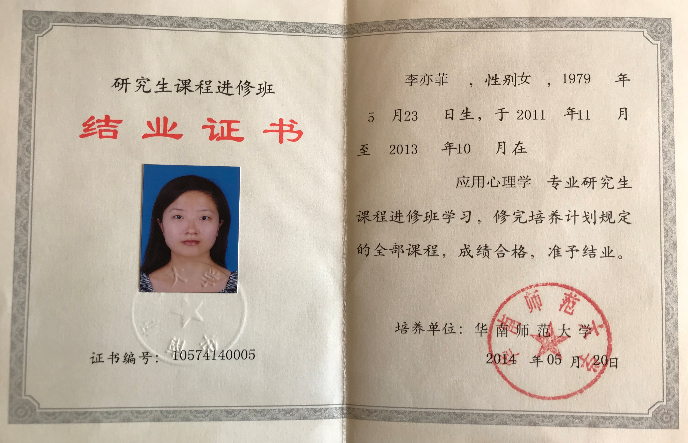 研究生课程进修班
结业证书
证书编号：10574140005
李亦菲 ，性别女，1979 年
5 月23 日生，于 2011 年11 月
至 2013 年10 月在
应用心理学 专业研究生
课程进修班学习，修完培养计划规定
的全部课程，成绩合格，准予结业。
培养单位：华南师范大学
2014 年 05 月 20日
华南师范大学